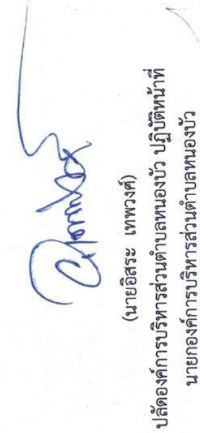 (นายอิสระ เทพวงศ์)
ปลัดองค์การบริหารส่วนตำบลหนองบัว ปฏิบัติหน้าที่
นายกองค์การบริหารส่วนตำบลหนองบัว